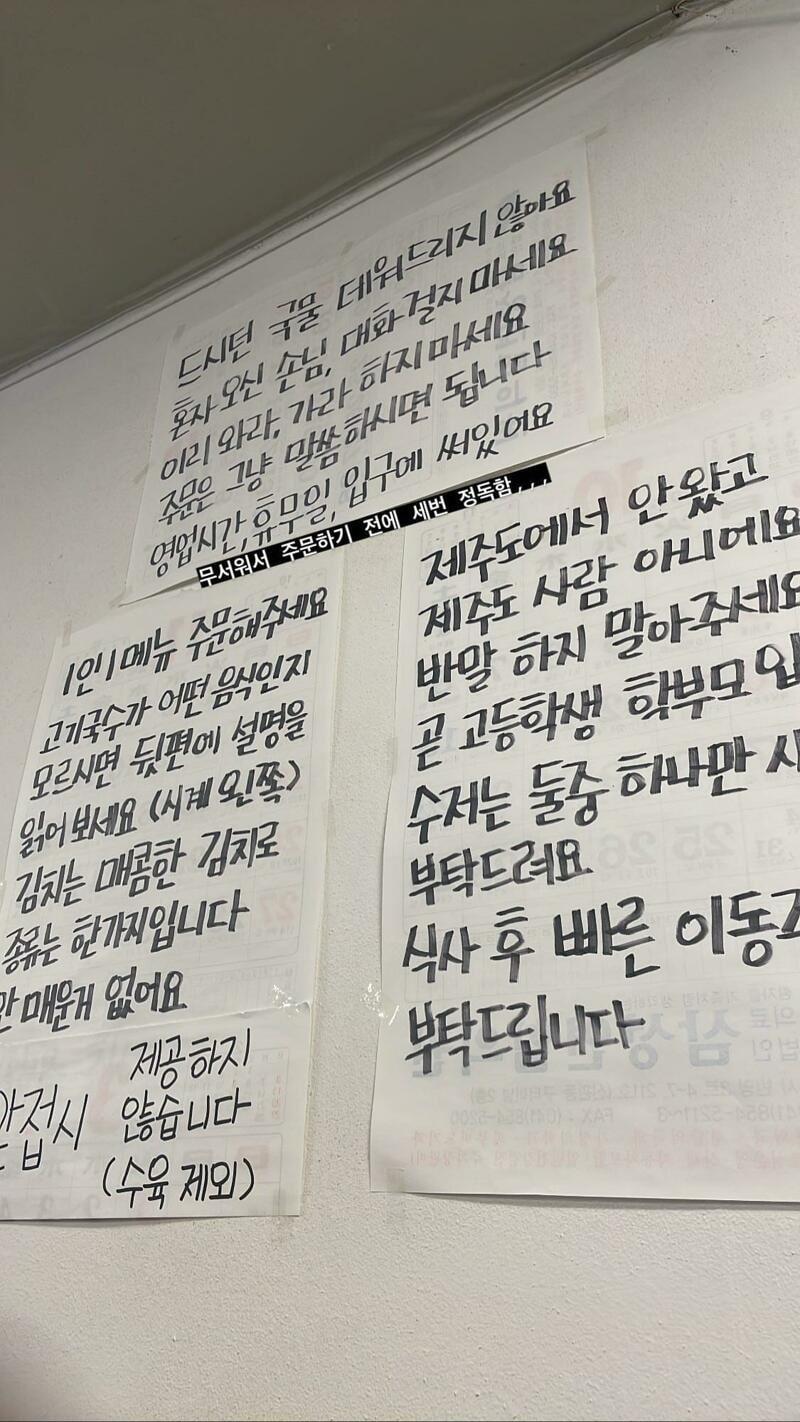 드시던 국물 데워드리지 않아요
혼자 오신 손님, 대화 걸지 마세요
이리 와라, 가라 하지 마세요
주문은 그냥 말씀하시면 됩니다
영업시간, 휴무일, 입구에 써있어요
무서워서 주문하기 전에 세번 정독함,,,
1인 1메뉴 주문해주세요
고기국수가 어떤 음식인지
모르시면 뒷편에 설명을
읽어 보세요 (시계 왼쪽)
김치는 매콤한 김치로
종류는 한가지입니다
안 매운거 없어요
앞접시 제공하지
않습니다
(수육 제외)
제주도에서 안 왔고
제주도 사람 아니에요
반말 하지 말아주세요
곧 고등학생 학부모 입
수저는 둘중 하나만 사
부탁드려요
식사 후 빠른 이동
부탁드립니다